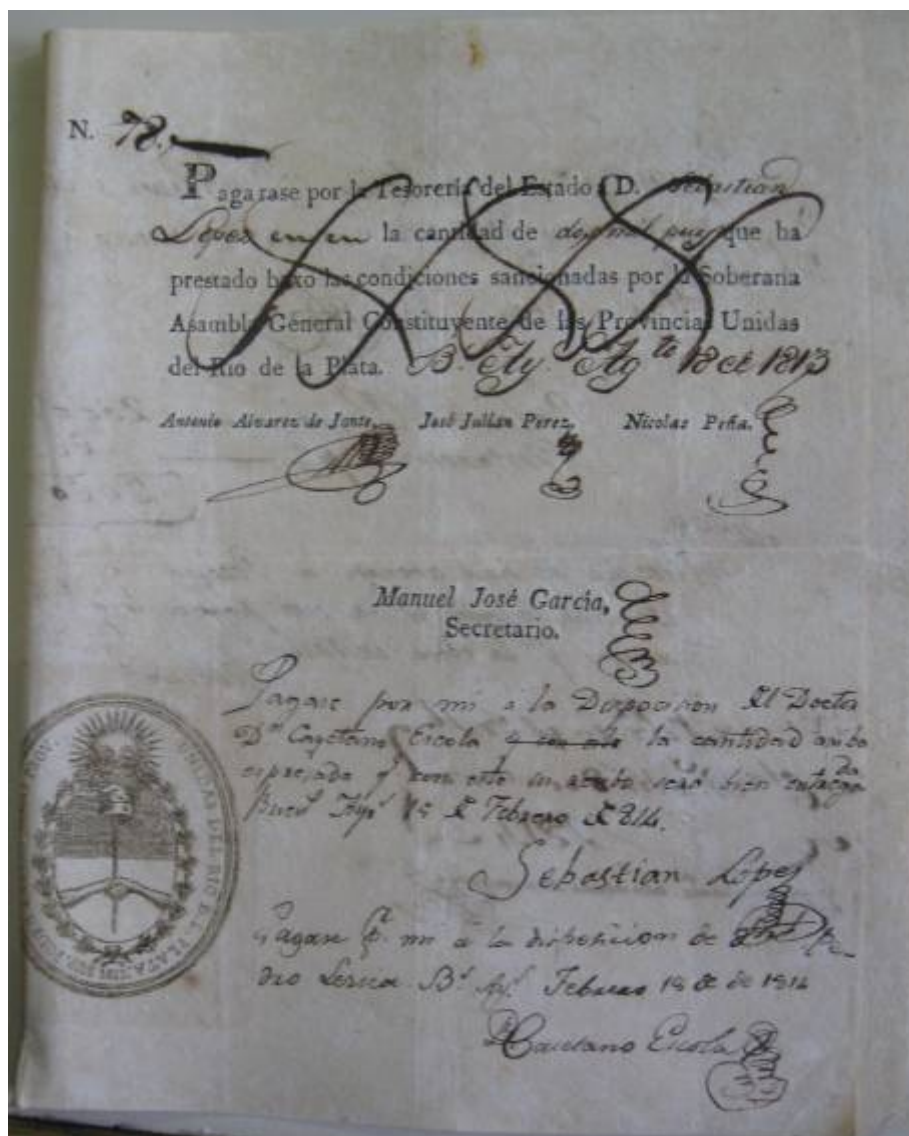 N. 78.
Pagarase por la Tesorería del Estado á D. Sebastian
Lopez en la cantidad de dos mil que há
prestado baxo las condiciones sancionadas por la Soberana
Asambla General Constituyente de las Provincias Unidas
del Rio de la Plata. B.s Ay.s Ag.to 18 de 1813
Antonio Alvarez de Jonte. José Julián Perez. Nicolas Peña.
Manuel José García,
Secretario.
Pagase por mi a la Disposicion del Doctor
Dn Cayetano Escola la cantidad arriba
expresada y con este su recibo será bien entrega da
15 de Febrero de 814.
Sebastian Lopez
Pagase p. mi á la disposicion de
Bs Ays Febrero 18 de 1814
Cayetano Escola